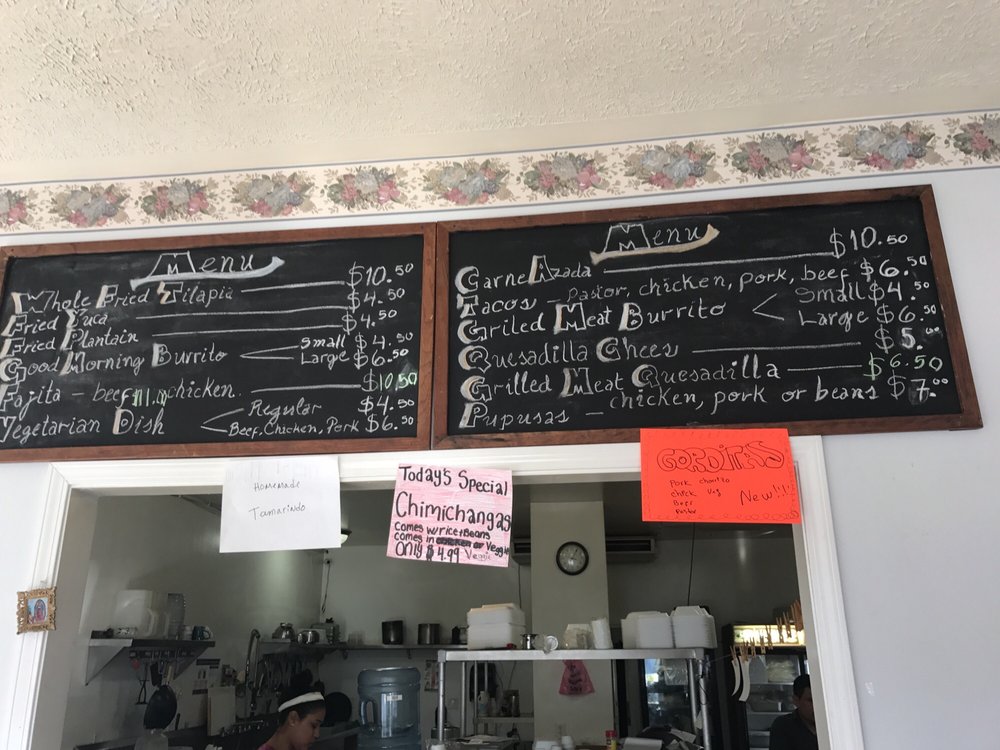 Menu
Whole Fried Tilapia $10.50
Fried Yuca $4.50
Fried Plantain $4.50
Good Morning Burrito Small $4.50
Large $6.50
Fajita - beef $11.00 chicken. $10.50
Vegetarian Dish Regular $4.50
Beef, Chicken, Pork $6.50
Menu
Carne Azada $10.50
Tacos - Pastor, chicken, pork, beef $6.50
Griled Meat Burrito Small $4.50
Large $6.50
Quesadilla Chees $5.00
Grilled Meat Quesadilla $6.50
Pupusas - chicken, pork or beans $7.00
Homemade
Tamarindo
Today's Special
Chimichangas
Comes w/rice+Beans
comes in chicken or Veggie
Only $4.99 Veggie
GORDITAS
Pork Chorizo
chick Veg
Beef
Pastor
New!!!!